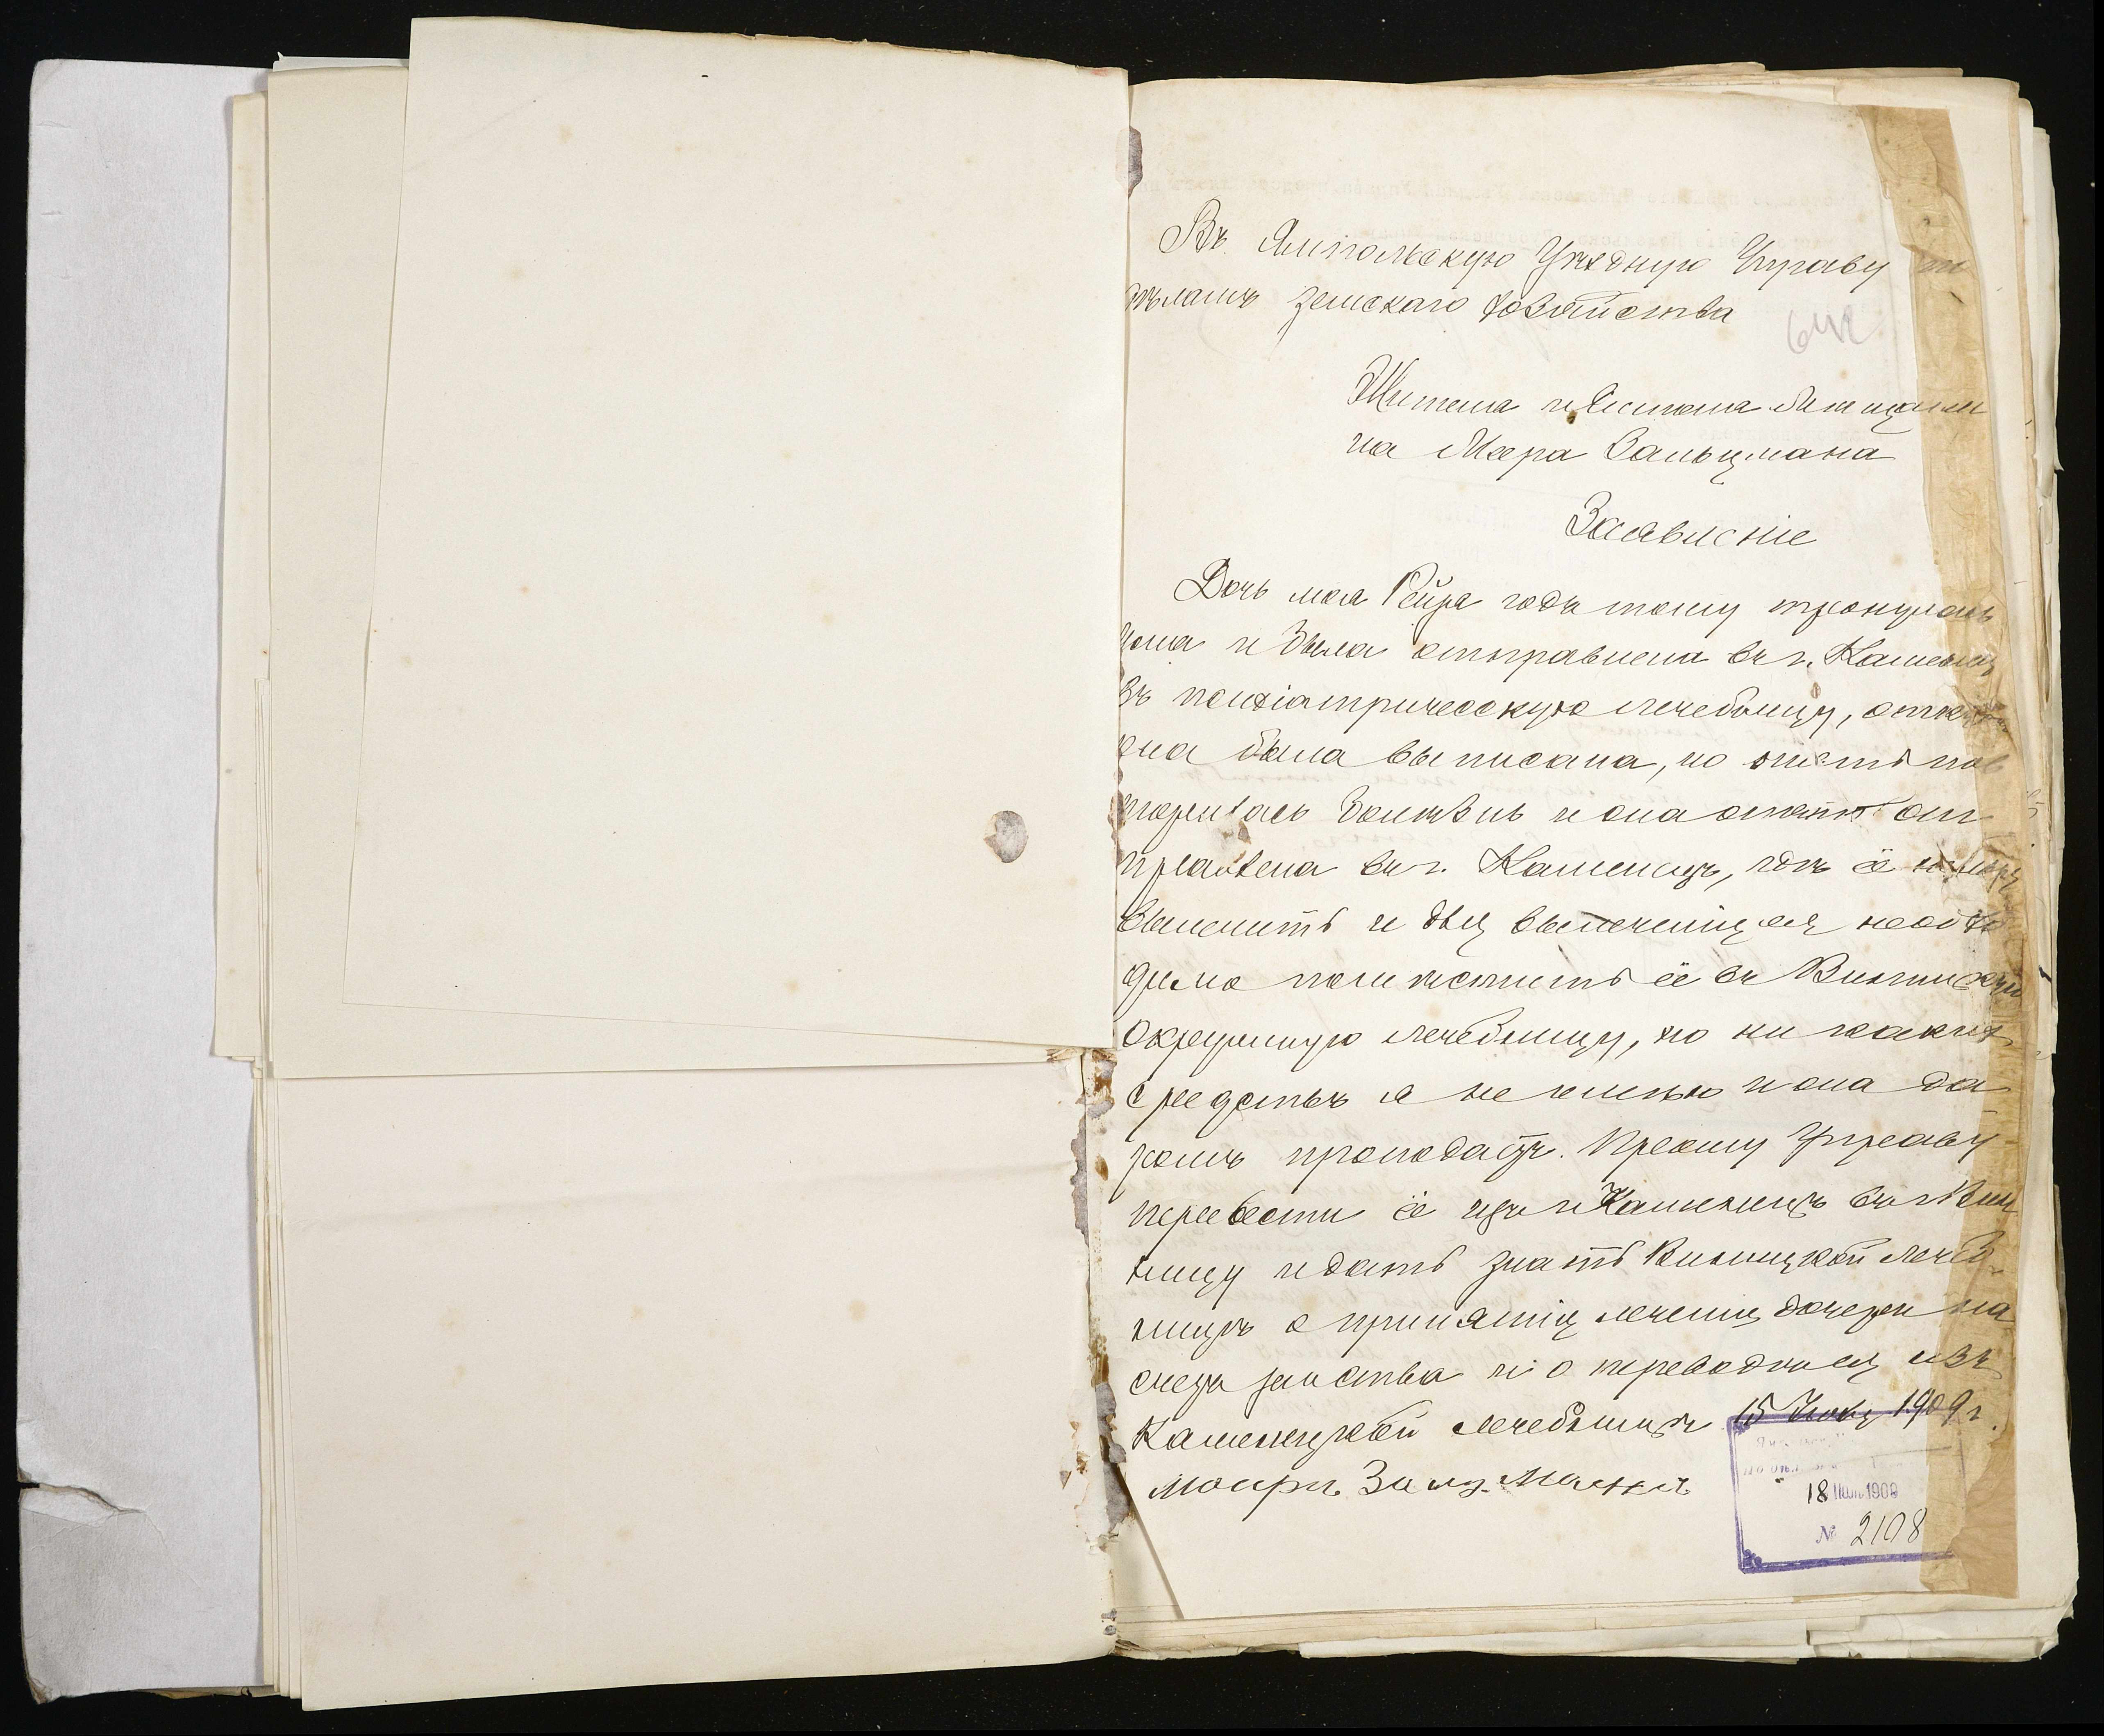 Въ Ямпольскую Уѣздную Управу по
дѣламъ земскаго хозяйства
642
Жителя м. Ямполя мѣщани
на Меера Зальцмана
Заявленіе
Дочь моя Рейза годъ тому тронулась
ума и была отправлена въ г. Каменецъ
въ психіатрическую лечебницу, откуда
она была выписана, но опять пов
торилась болѣзнь и она опять от
правлена въ г. Каменецъ, гдѣ её
вылечить и для вылеченія ея необхо
димо помѣстить её въ Винницкую
Окружную лечебницу, но ни какихъ
средствъ я не имѣю и она да
ромъ пропадаетъ. Прошу Управу
перевести её изъ г. Каменецъ въ г. Вин
ницу и дать знать Виницкой лечеб
ницѣ о принятіи лечении дочери на
счетъ земства и о переводѣ ея изъ
Каменецкой лечебницы 15 1909 г.
Моиръ Залзманъ
18 1909
№ 2108